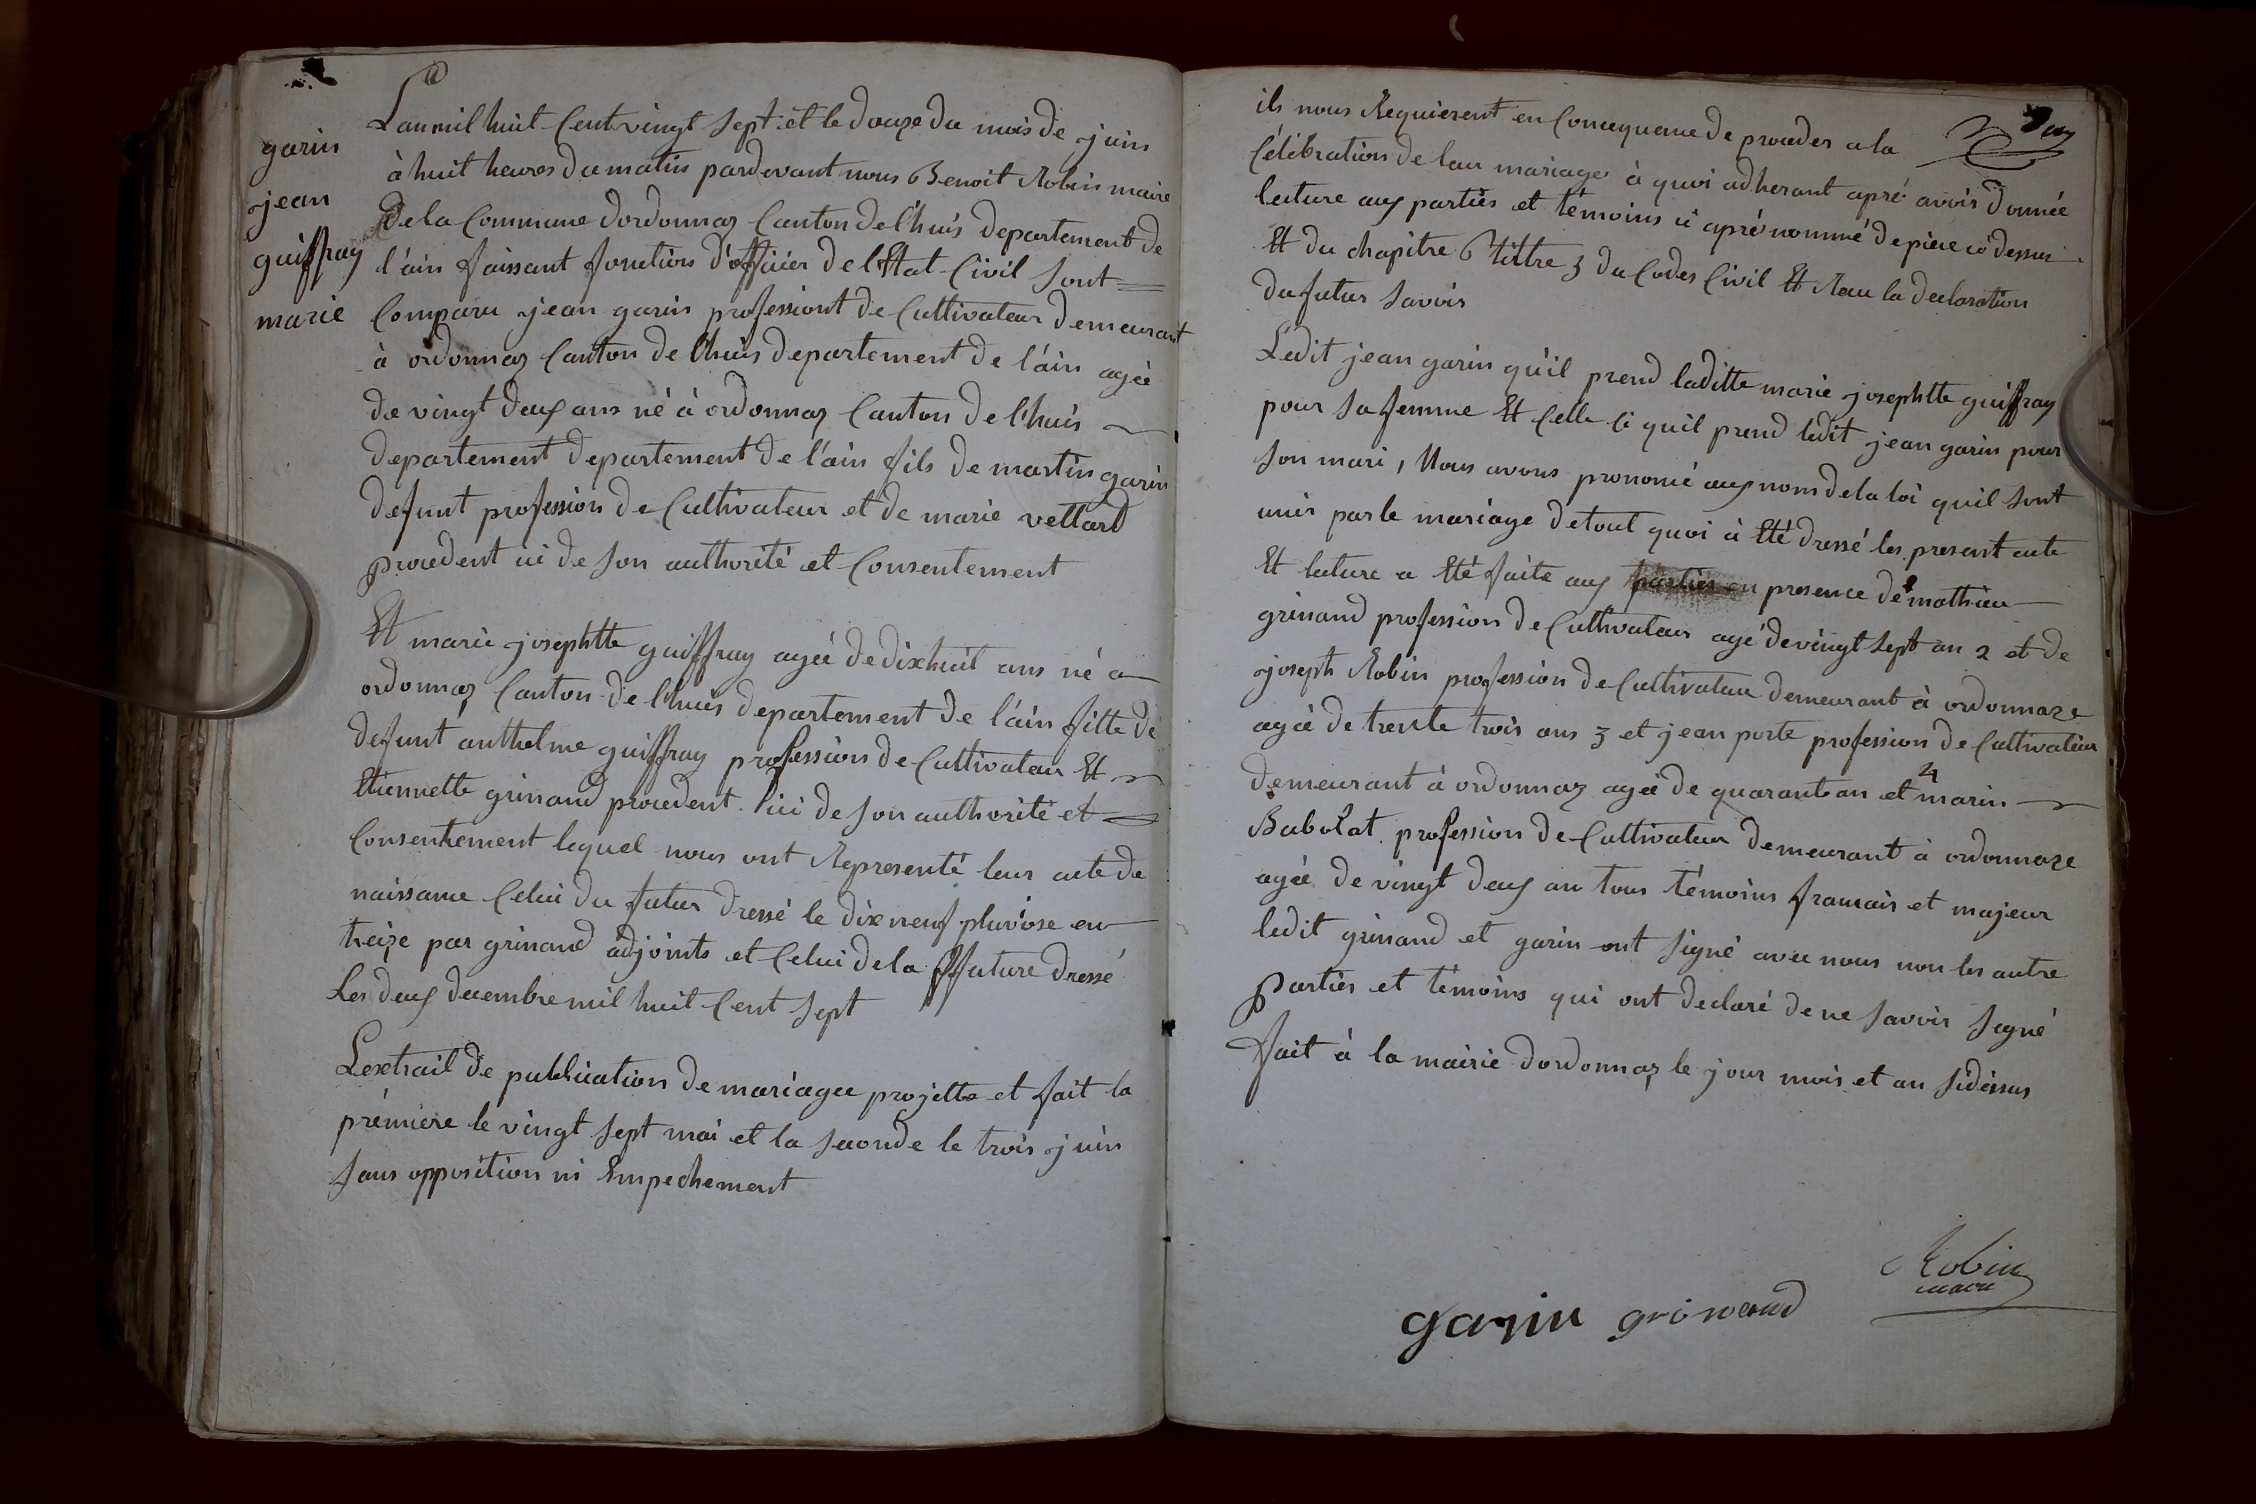 garin
jean
guiffray
marie
Lan mil huit Cent vingt Sept et le douze du mois de juin
à huit heures du matin pardevant nous Benoit Robin maire
de la Commune dordonnaz Canton de lhuis departement de
l'ain faissant fonction d'officier de l'Etat Civil sont
Comparu jean garin professiont de Cultivateur demeurant
à ordonnaz Canton de lhuis departement de l'ain agée
de vingt deux ans né à ordonnaz Canton de l'huis
departement departement de l'ain fils de martin garin
defunt profession de Cultivateur et de marie vettard
procedent ici de son authorité et Consentement
Et marie josephtte guiffray agée de dixhuit ans né a
ordonnaz Canton de lhuis departement de l'ain fille de
defunt anthelme guiffray profession de Cultivateur Et
Etiennette grinand procedent ici de son authorité et
Consentement lequel nous ont Representé leur acte de
naissance Celui du futur dressé le dix neuf pluviose en
treize par grinand adjoints et Celui de la ffuture dressé
Les deux decembre mil huit Cent Sept
Lextrail de publication de mariagee projette et fait la
prémiere le vingt Sept mai et la seconde le trois juin
sans opposition ni Empechement
ils nous Requierent en Concequence de proceder a la
Célébration de leur mariage à quoi adherant apré avoir donnée
lecture aux partiés et témoins ci apré nommé de piece ci dessus
Et du chapitre 6 tittre 3 du Codes Civil Et Recu la declaration
du futur Savoir
Ledit jean garin qu'il prend laditte marie josephtte guiffray
pour sa femme Et Celle ci quil prend ledit jean garin pour
Son mari, Nous avons prononcé aux nom de la loi quil sont
unir par le mariage de tout quoi à Eté dressé les present acte
Et lecture a Eté faite aux parties en presence de mathieu
grinand profession de Cultivateur agé de vingt Sept an 2 et de
joseph Robin profession de Cultivateur demeurant à ordonnaze
agée de trente trois ans 3 et jean porte profession de Cultivateur
demeurant à ordonnaz agée de quarante an et 4 marin
Babolat profession de Cultivateur demeurant à ordonnaze
agée de vingt deux an tous témoins francais et majeur
ledit grinand et garin ont Signé avec nous non les autre
Partiés et témoins qui ont declaré de ne Savoir Signé
fait à la mairie dordonnaz le jour mois et an sidessus
Robin
maire
garin grinand